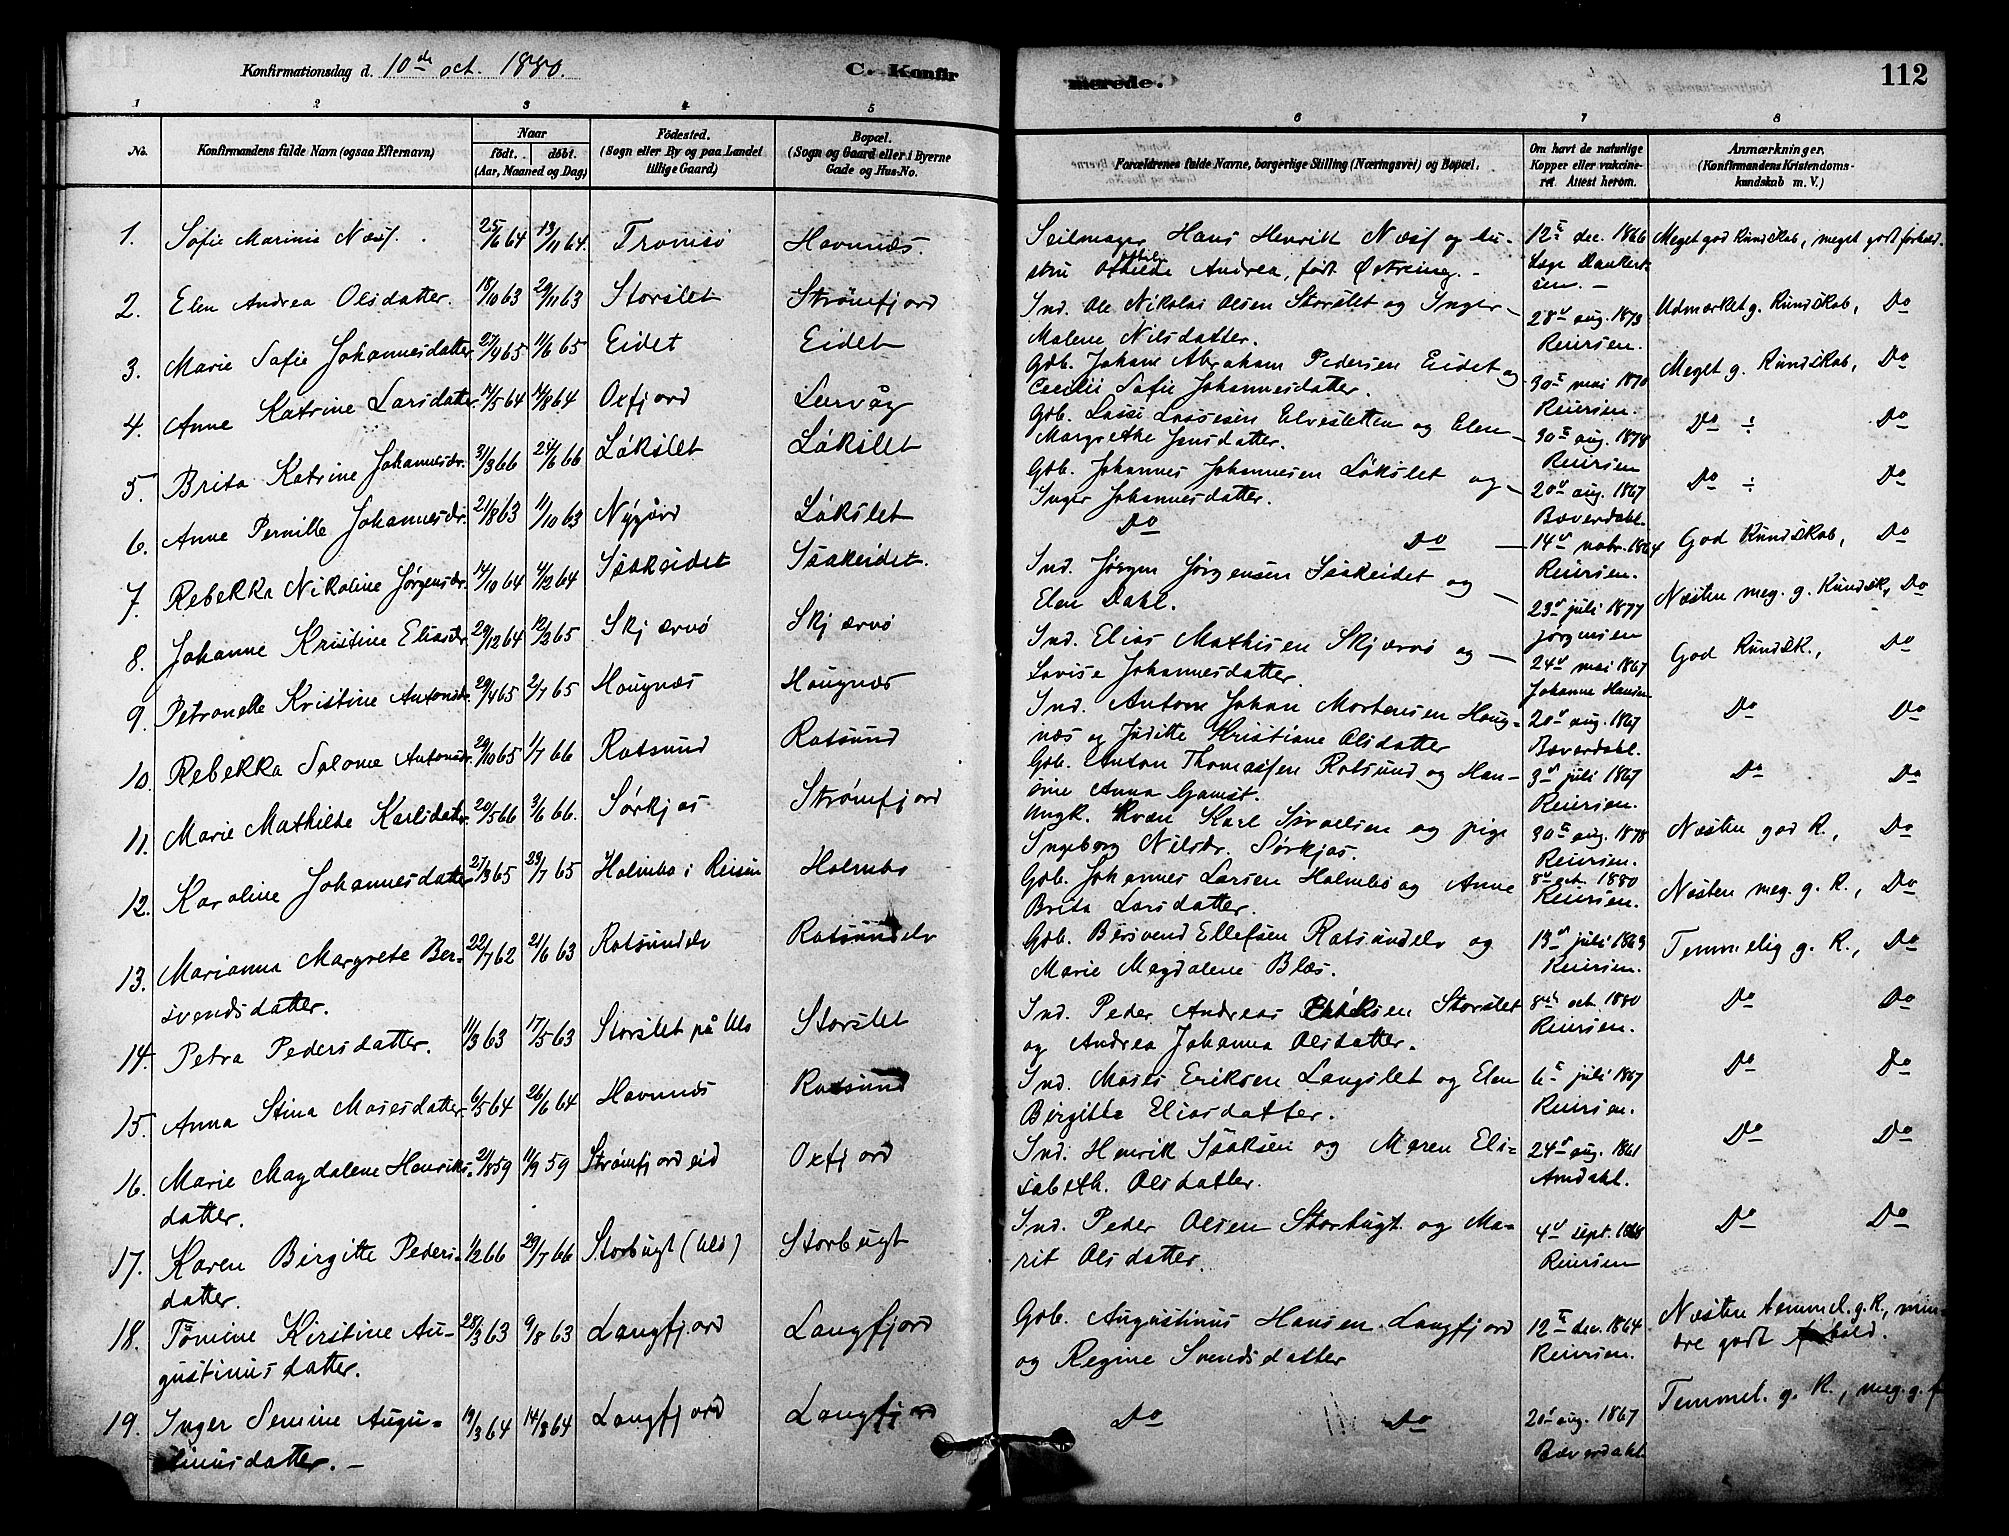 Konfirmationsdag d. 10de oct. 1880.
C. Konfirmerede.
112
1 2 3 4 5 6 7 8
No.
Konfirmandens fulde Navn (ogsaa Efternavn)
Naar
født. døbt.
(Aar, Maaned og Dag)
Födested.
(Sogn eller By og paa Landet
tillige Gaard)
Bopæl.
(Sogn og Gaard eller i Byerne
Gade og Hus-No.
Forældrenes fulde Navne, borgerlige Stilling (Næringsvei) og Bopæl.
Om havt de naturlige
Kopper eller vakcine-
ret. Attest herom.
Anmærkninger.
(Konfirmandens Kristendoms-
kundskab m. V.)
1. Sofie Marinie Næss. 25/6 64 13/11 64. Tromsö Havnnæs. Seilmager Hans Henrik Næss og hu- 12te dec. 1866 Meget god Kundskab, meget godt forhold.
stru Othilde Andrea, født Østreing. Læge Dankert-
sen.
2. Elen Andrea Olsdatter. 18/10 63 29/11 63 Storslet Strømfjord Ind. Ole Nikolai Olsen Storslet og Inger 28de aug. 1873 Udmærket g. Kundskab, Do
Malene Nilsdatter. Reiersen.
3. Marie Sofie Johannesdatter 27/4 65 11/6 65 Eidet Eidet Gdb. Johan Abraham Pedersen Eidet og 30te mai 1870 Meget g. Kundskab, Do
Cecilii Sofie Johannesdatter. Reiersen.
4. Anne Katrine Larsdatter 14/5 64 14/8 64 Oxfjord Lervåg Gdb. Lassi Lassesen Elvesletten og Elen 30te aug. 1878 Do Do
Margrethe Jensdatter. Reiersen
5. Brita Katrine Johannesdr. 31/3 66 24/6 66 Løkslet Løkslet Gdb. Johannes Johannesen Løkslet og 20de aug. 1867 Do Do
Inger Johannesdatter. Bæverdahl.
6. Anne Pernille Johannesdr. 21/8 63 11/10 63 Nygård Løkslet Do Do 14de nobr. 1864 God Kundskab, Do
Reiersen.
7. Rebekka Nikoline Jørgensdr. 14/10 64 4/12 64 Isakeidet Isakeidet. Ind. Jørgen Jørgensen Isakeidet og 23de juli 1877 Næsten meg. g. Kundsk., Do
Elen Dahl. Jørgensen
8. Johanne Kristine Eliasdr. 29/12 64 12/2 65 Skjærvö Skjærvö Ind. Elias Mathisen Skjærvö og 24de mai 1867 God Kundsk., Do
Lovise Johannesdatter. Johanne Hansen
9. Petronelle Kristine Antonsdr. 20/4 65 2/7 65 Hougnæs Hougnæs Ind. Anton Johan Mortensen Houg- 20de aug. 1867 Do Do
næs og Joditte Kristiane Olsdatter Bæverdahl.
10. Rebekka Salome Antonsdr. 29/10 65 1/7 66 Rotsund Rotsund Gdb. Anton Thomassen Rotsund og Han- 3de juli 1867 Do Do
sine Anna Gamst. Reiersen.
11. Marie Mathilde Karlsdatter 20/5 66 3/6 66. Sørkjos Strømfjord Ungk. Kvæn Karl Israelsen og pige 30te aug. 1878 Næsten god K., Do
Ingeborg Nilsdr. Sørkjos. Reiersen.
12. Karoline Johannesdatter 27/3 65 23/7 65 Holmbo i Reisen Holmbo Gdb. Johannes Larsen Holmbo og Anne 8de oct. 1880 Næsten meg. g. K., Do
Brita Larsdatter. Reiersen.
13. Marianna Margrete Ber- 22/7 62 21/6 63 Rotsundelv Rotsundelv Gdb. Bersvend Ellefsen Rotsundelv og 13de juli 1863 Temmelig g. K., Do
svendsdatter. Marie Magdalene Blæs. Reiersen.
14. Petra Pedersdatter. 11/3 63 17/5 63 Storslet på Ulö Storslet Ind. Peder Andreas Eriksen Storslet 8de oct. 1880 Do Do
og Andrea Johanna Olsdatter. Reiersen.
15. Anna Stina Mosesdatter 6/5 64 26/6 64 Havnnæs Rotsund Ind. Moses Eriksen Langslet og Elen 6te juli 1867 Do Do
Birgitte Eliasdatter. Reiersen.
16. Marie Magdalene Henriks- 21/8 59 11/9 59 Strømfjordeid Oxfjord Ind. Henrik Isaksen og Maren Eli- 24de aug. 1861 Do Do
datter. sabeth. Olsdatter. Amdahl.
17. Karen Birgitte Peders- 1/2 66 29/7 66 Storbugt (Ulö) Storbugt Ind. Peder Olsen Storbugt og Ma- 4de sept. 1868 Do Do
datter. rit Olsdatter. Reiersen
18. Tomine Kirstine Au- 28/3 63 9/8 63 Langfjord Langfjord Gdb. Augustinus Hansen Langfjord 12te dec. 1864 Næsten temmel. g. K., min-
gustinusdatter. og Regine Svendsdatter Reiersen. dre godt forhold.
19. Inger Semine Augu- 19/3 64 14/8 64 Langfjord Langfjord Do Do 20de aug. 1867 Temmel. g. K., meg. g. f
stinusdatter. Bæverdahl